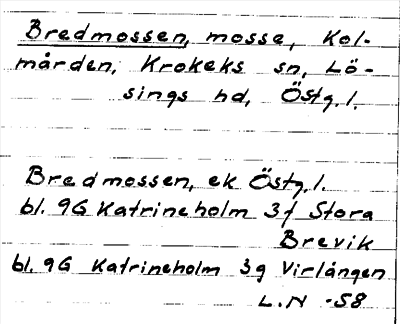 Bredmossen, mosse, Kol-
mården, Krokeks sn, Lö-
sings hd, Östg. l.
Bredmossen, ek Östg. l.
bl. 9G Katrineholm 3f Stora
Brevik
bl. 9G Katrineholm 3g Virlången
L.N -58